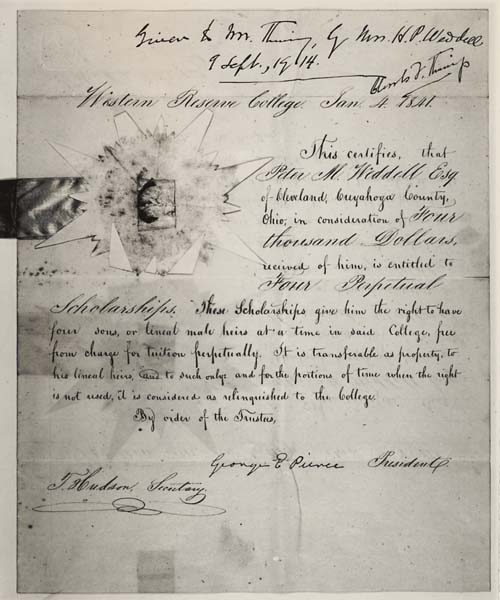 Given to Mr. Thwing, by Mrs. H. P. Weddell
9 Sept., 1914.
Charles F. Thwing
Western Reserve College Jan. 4. 1841.
This certifies, that
Peter M. Weddell Esq
of Cleveland, Cuyahoga County,
Ohio, in consideration of Four
thousand Dollars,
received of him, is entitled to
Four Perpetual
Scholarships. These Scholarships give him the right to have
four sons, or lineal male heirs at a time in said College, free
from charge for tuition perpetually. It is transferable as property, to
his lineal heirs, and to such only: and for the portions of time when the right
is not used, it is considered as relinquished to the College.
By order of the Trustees,
George E Pierce President
T. Hudson, Secretary.